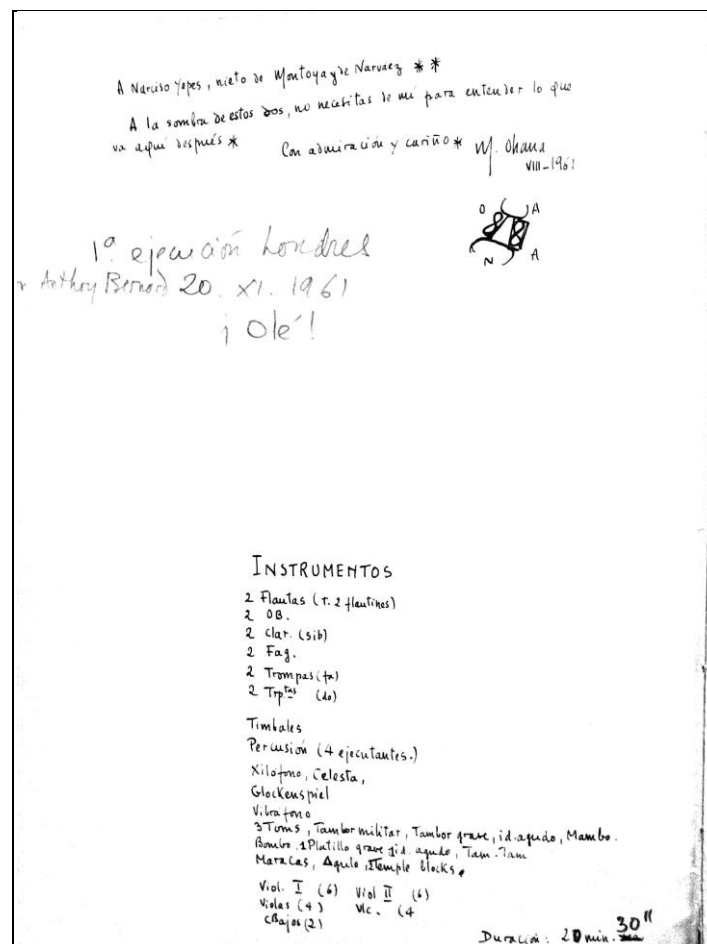 A Narciso Yepes, nieto de Montoya y de Narvaez * *
A la sombra de estos dos, no necesitas de mí para entender lo que
va aquí después *
Con admiración y cariño * M. Ohana
VIII-1961
O A
N A
1ª ejecución Londres
Anthony Bernard 20. XI. 1961
¡Olé!
INSTRUMENTOS
2 Flautas (T. 2 flautines)
2 OB.
2 Clar. (sib)
2 Fag.
2 Trompas (fa)
2 Trptas (do)
Timbales
Percusión (4 ejecutantes.)
Xilófono, Celesta,
Glockenspiel
Vibrafono
3 Toms, Tambor militar, Tambor grave, id. agudo, Mambo.
Bombo, 1 Platillo grave, id. agudo, Tam-Tam
Maracas, Temple blocks.
Viol. I (6) Viol II (6)
Violas (4) Vlc. (4
CBajos (2)
Duración: 20 min. 30"